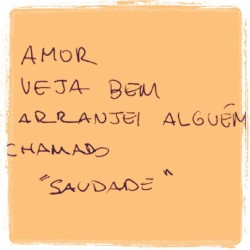 AMOR
VEJA BEM
ARRANJEI ALGUÉM
CHAMADO
"SAUDADE"